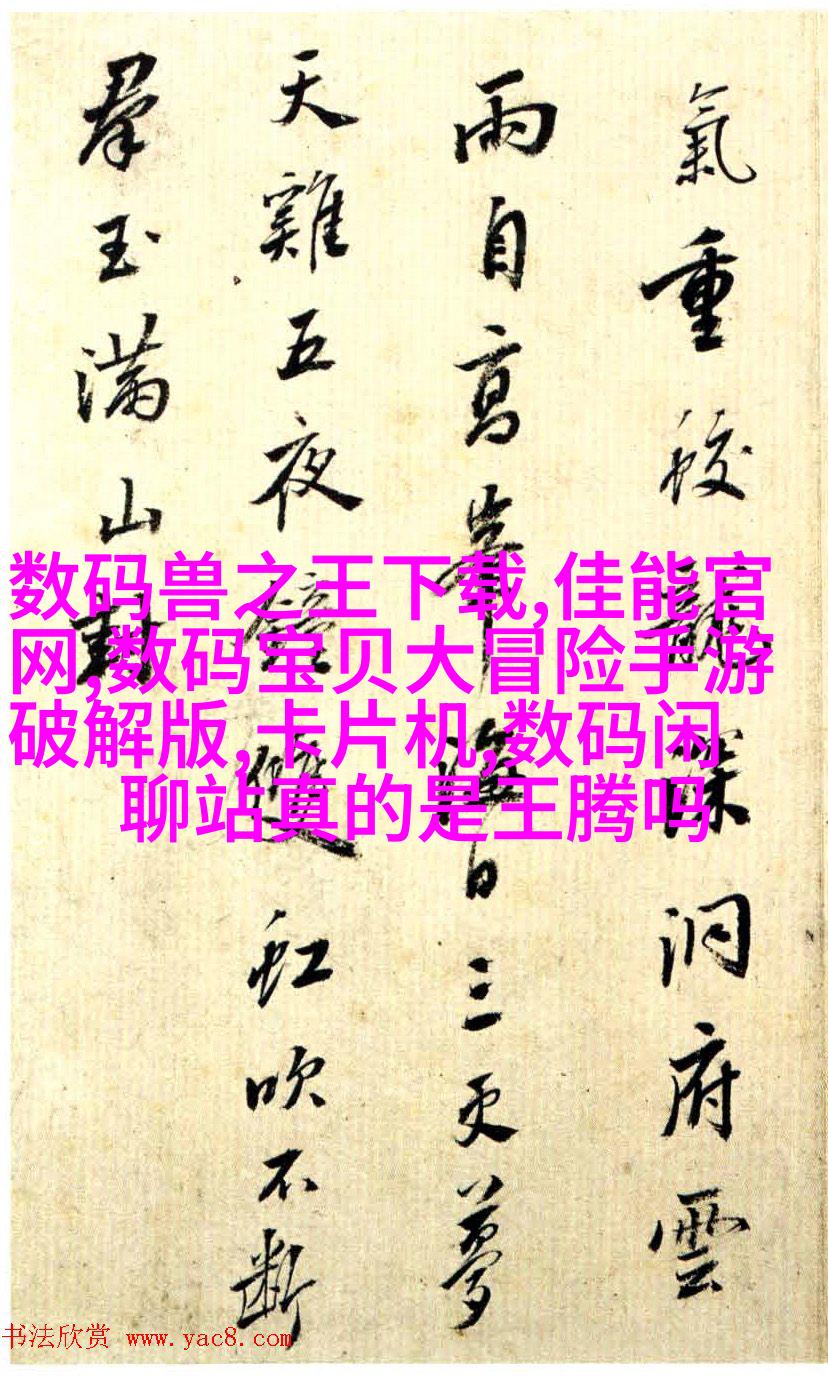 氣重蛟龍深洞府雲
雨自高峯海日三更夢
天雞五夜鐘雙虹吹不斷
羣玉滿山封
数码兽之王下载,佳能官
网,数码宝贝大冒险手游
破解版,卡片机,数码闲
聊站真的是王腾吗
书法欣赏 www.yac8.com